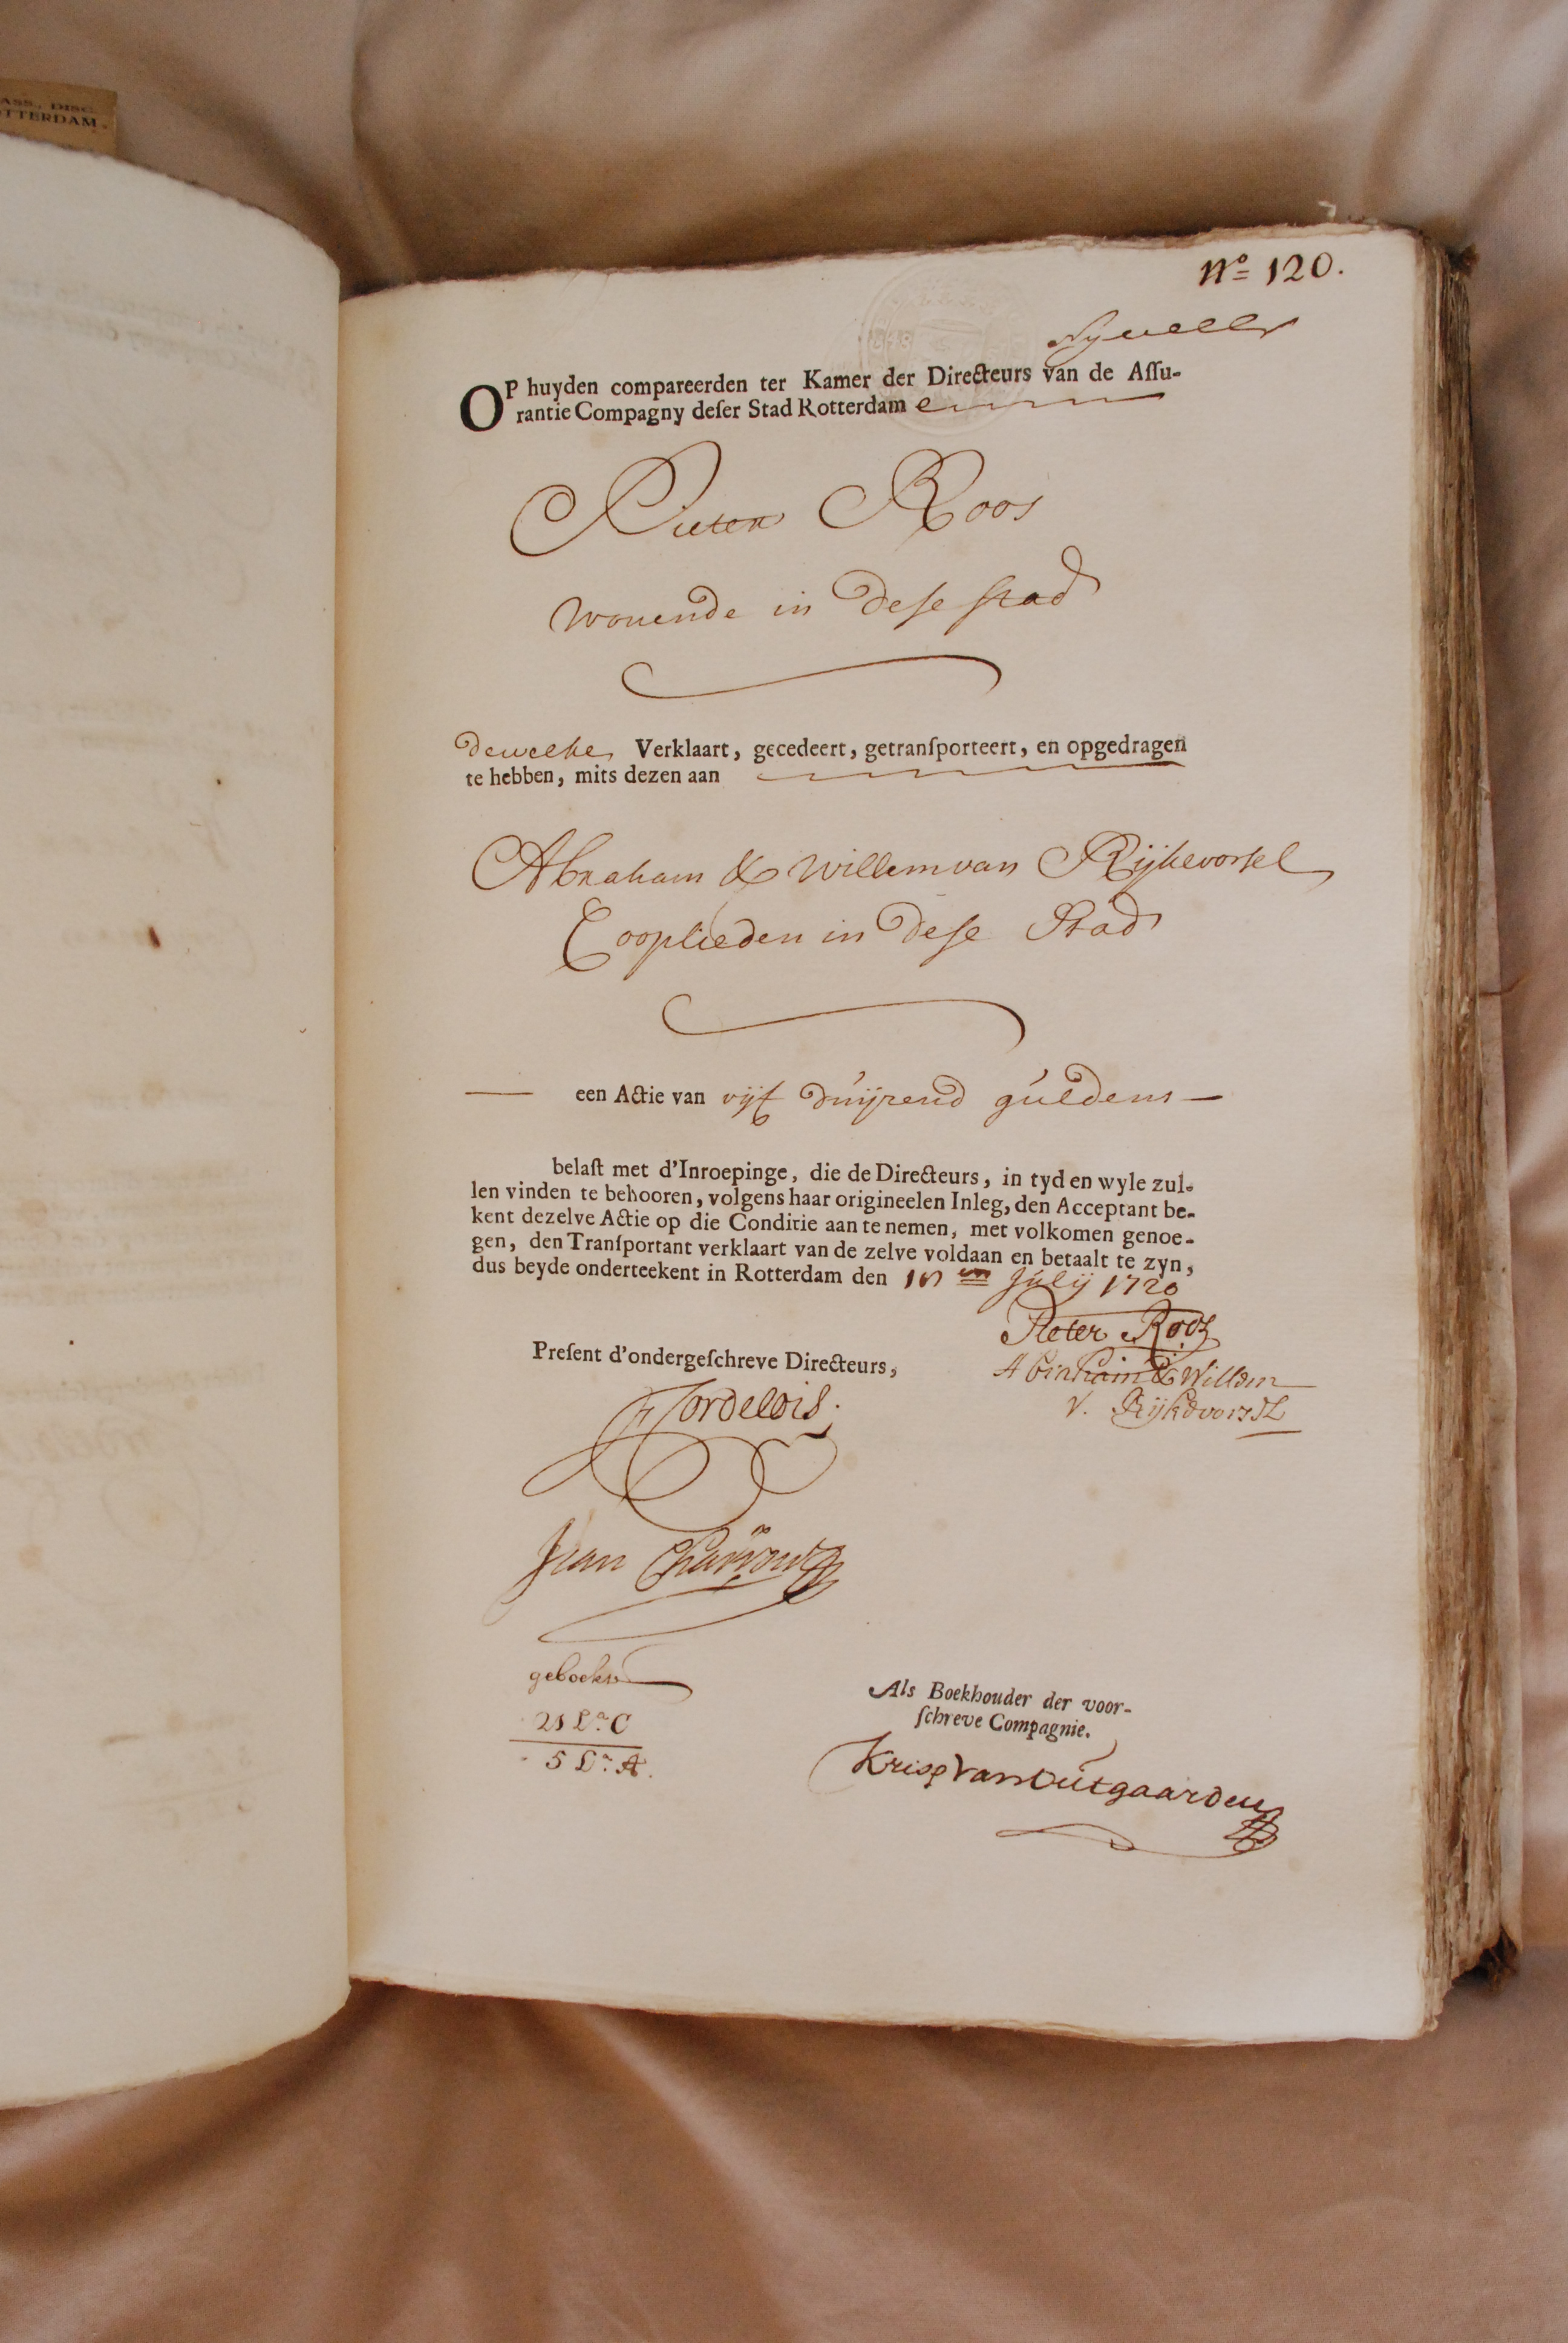 ASS., DISC.
OTTERDAM.
Nº 120.
OP huyden compareerden ter Kamer der Directeurs van de Assu-
rantie Compagny deser Stad Rotterdam
Pieter Roos
wonende in dese stad
dewelke Verklaart, gecedeert, getransporteert, en opgedragen
te hebben, mits dezen aan
Abraham & Willem van Rijkevorsel
Cooplieden in dese Stad
een Actie van vijf duijzend guldens
belast met d'Inroepinge, die de Directeurs, in tyd en wyle zul-
len vinden te behooren, volgens haar origineelen Inleg, den Acceptant be-
kent dezelve Actie op die Conditie aan te nemen, met volkomen genoe-
gen, den Transportant verklaart van de zelve voldaan en betaalt te zyn,
dus beyde onderteekent in Rotterdam den Julij 1720
Pieter Roos
Abraham & Willem
V. Rijkevorsel
Present d'ondergeschreve Directeurs,
Jean
geboekt
21 Lª C
5 Lª A.
Als Boekhouder der voor-
schreve Compagnie.
Krisp van Uitgaarden